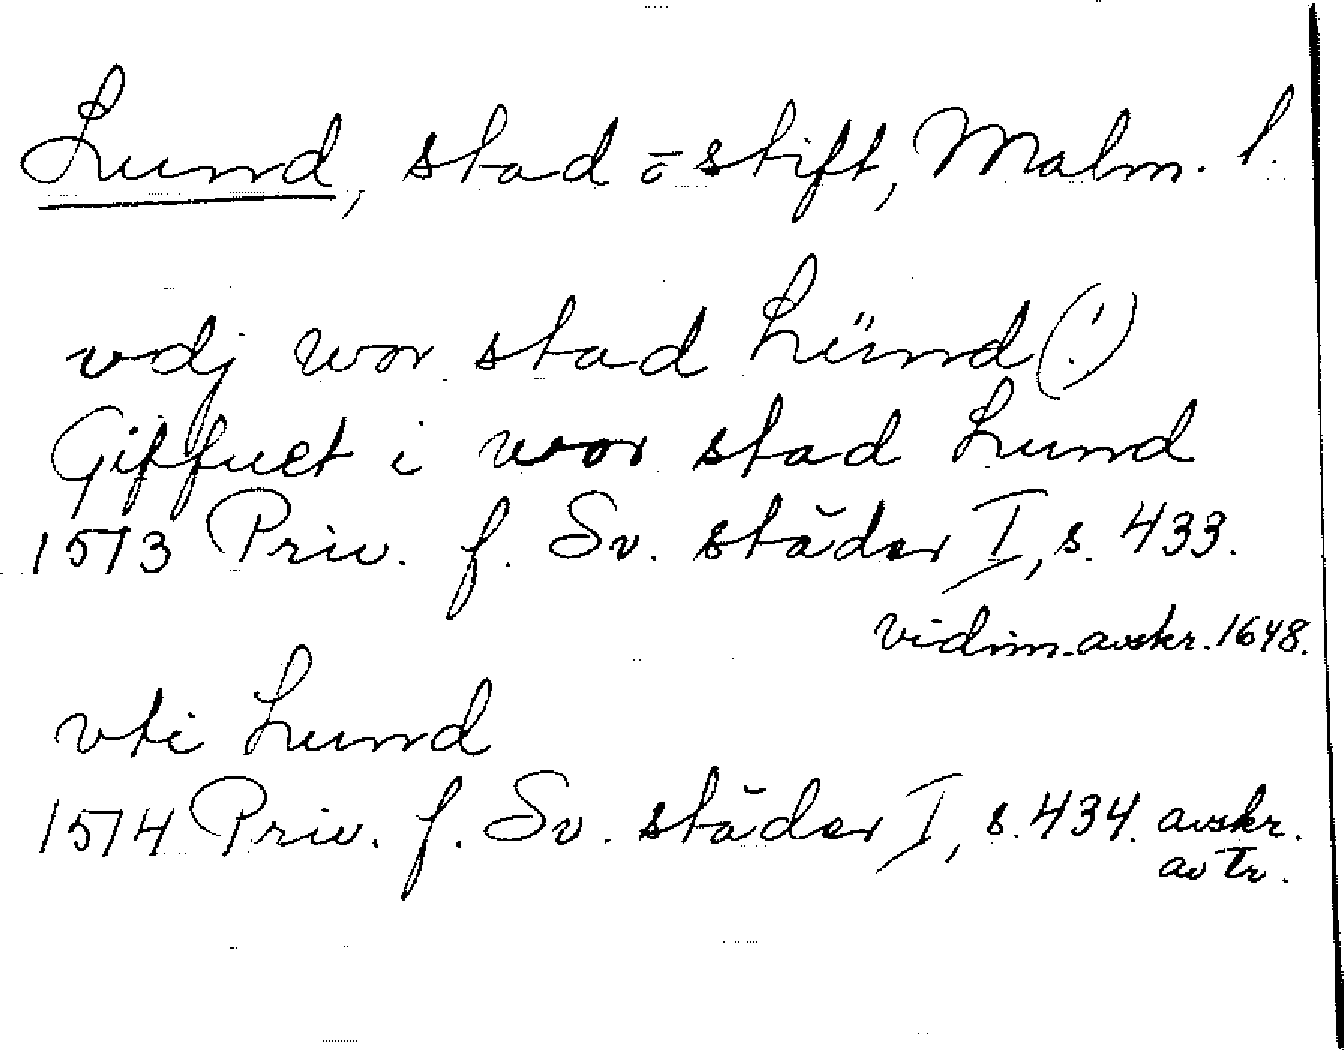 Lund, stad o stift, Malm. l.
vdj wor stad Lünd (!)
Giffuet i wor stad Lund
1513 Priv. f. Sv. städer I, s. 433.
vidim. avskr. 1648.
vti Lund
1514 Priv. f. Sv. städer I, s. 434. avskr.
av Tr.